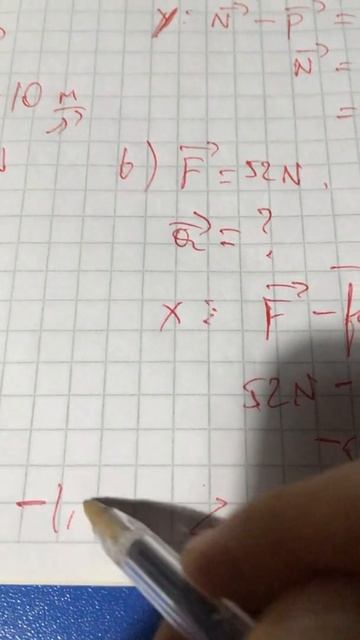 y: N⃗ - P⃗ =
N⃗ =
=
10 m/s²
b) F⃗ = 52N,
a⃗ = ?
x: F⃗ -
52N -
-1,